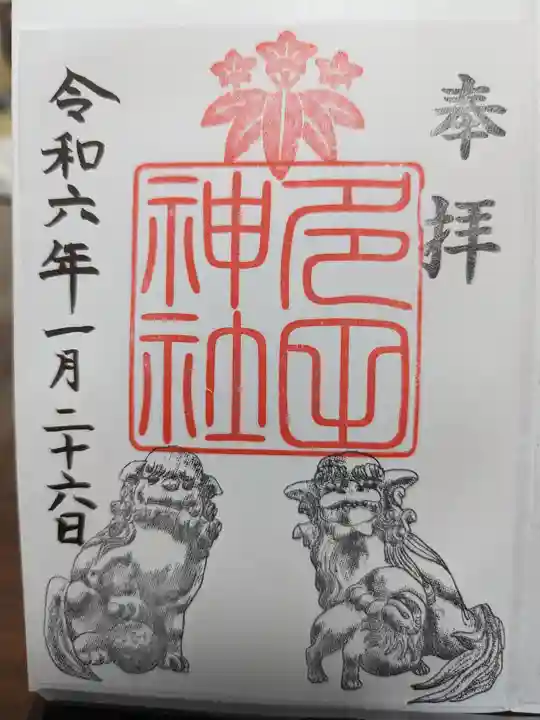 奉拝
多田
神社
令和六年一月二十六日